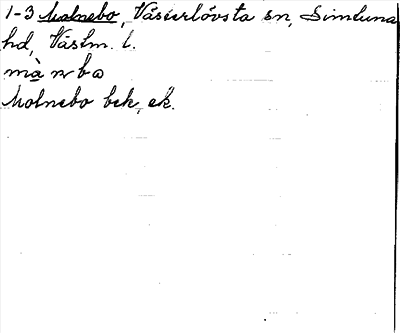 1-3 Molnebo, Västerlövsta sn, Simtuna
hd, Västm. l.
mànbo
Molnebo bek, ek.